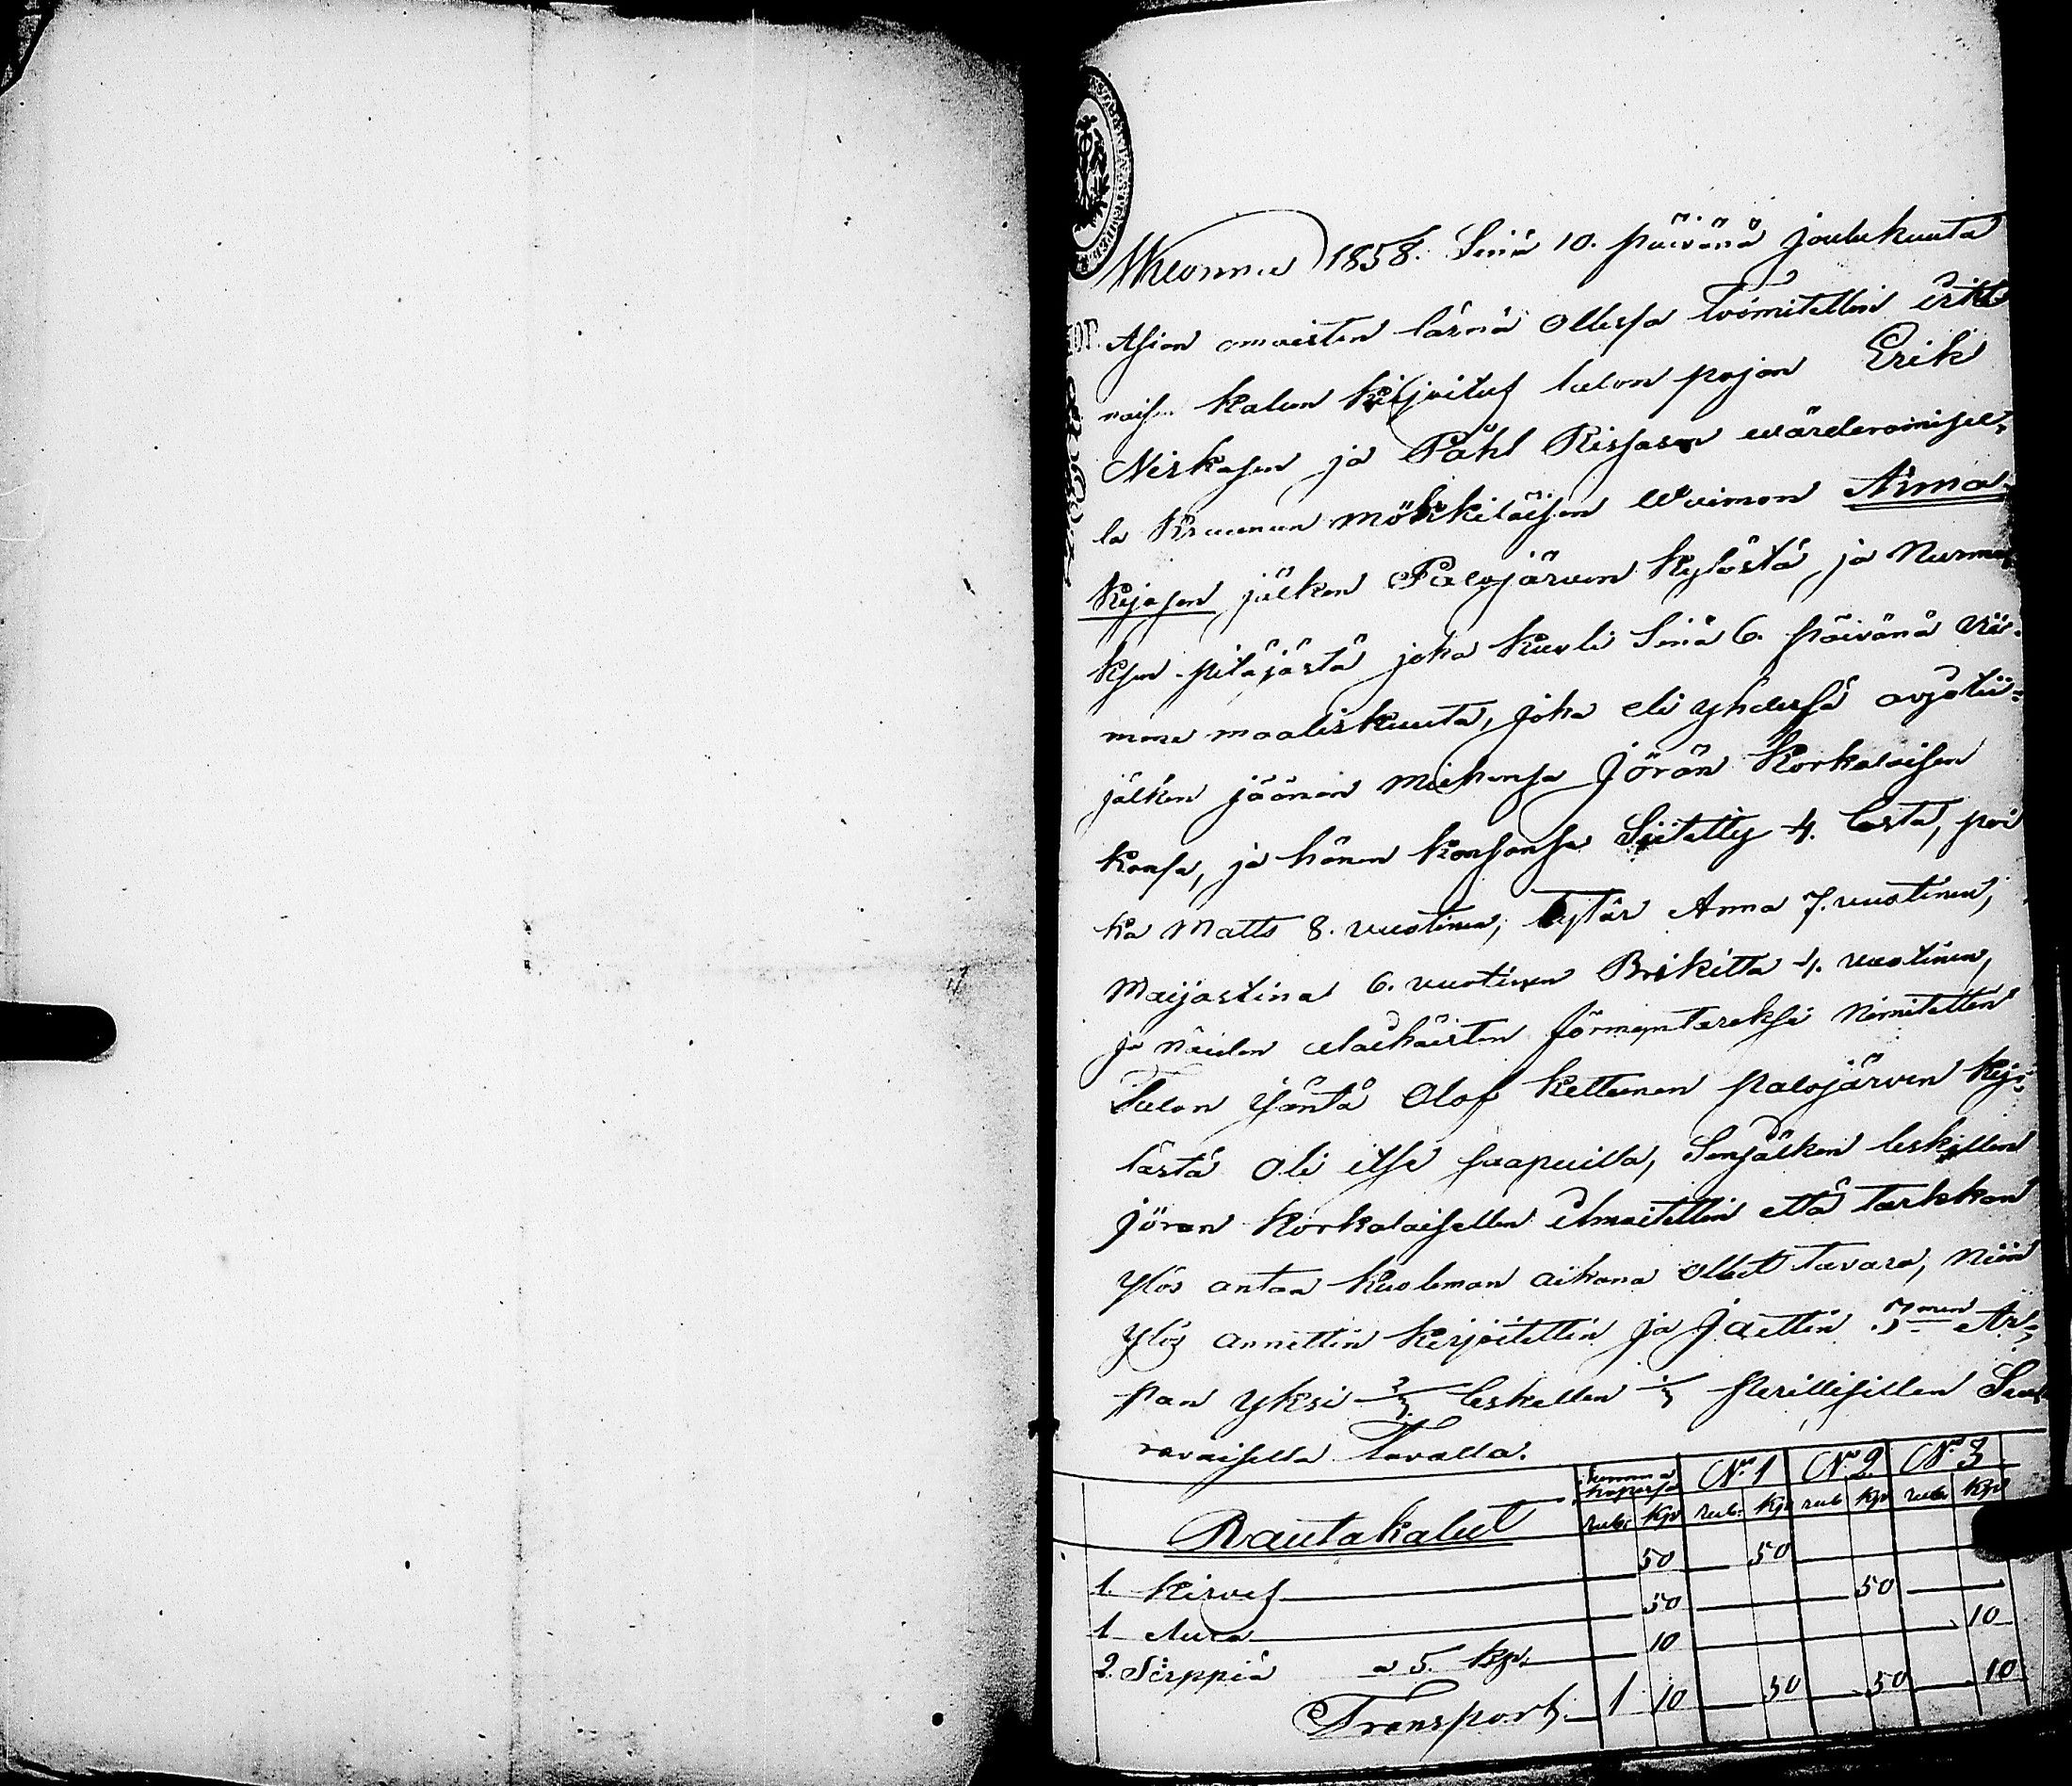 Wuonna 1858. Sinä 10. päivänä joulukuuta
Asian omaisten läsnä ollessa toimitettin irtt
naisen kalun kirjoitus talon pojan Erik
Niskasen ja Påhl Rissasen wärderamisel-
la Kruunun mökkiläisen Waimon Anna
Kejasen jälken Palojärven kylästä, ja Nurme-
ksen pitäjästä joka kuoli Sinä 6. päivänä vii-
mme maaliskuuta, joka eli yhdessä avjotii-
jälken jäänen miehensä Jörän Korkalaisen
kansa, ja hänen kansansa Siitetty 4. lasta, poi
ka Matts 8. vuotinen, tytär Anna 7. vuotinen,
Maijastina 6. vuotinen Brikitta 4. vuotinen,
ja näiden alaikäisten förmyntäreksi Nimitettin
Talon Isäntä Olof Kettunen palojärven ky-
lästä oli itse saapuilla, Senjälken leskellen
Jöran Korkalaisellen ilmoitettin että tarkkan
ylös antaa kuoleman aikana ollut tavara, niin
ylös annettin kirjoitettin ja Jaettin 3men Ar-
pan yksi leskellen perillisillen Seu
ravaisella Tavalla.
Summa hopeassa No. 1 No. 2 No. 3
Rautakalut rub. kp rub. kp rub. kp rub. kp
1. Kirves 50 50
1 Aura 50 50
2. Sirppiä a 5. kp. 10 10
Transport 1 10 50 50 10